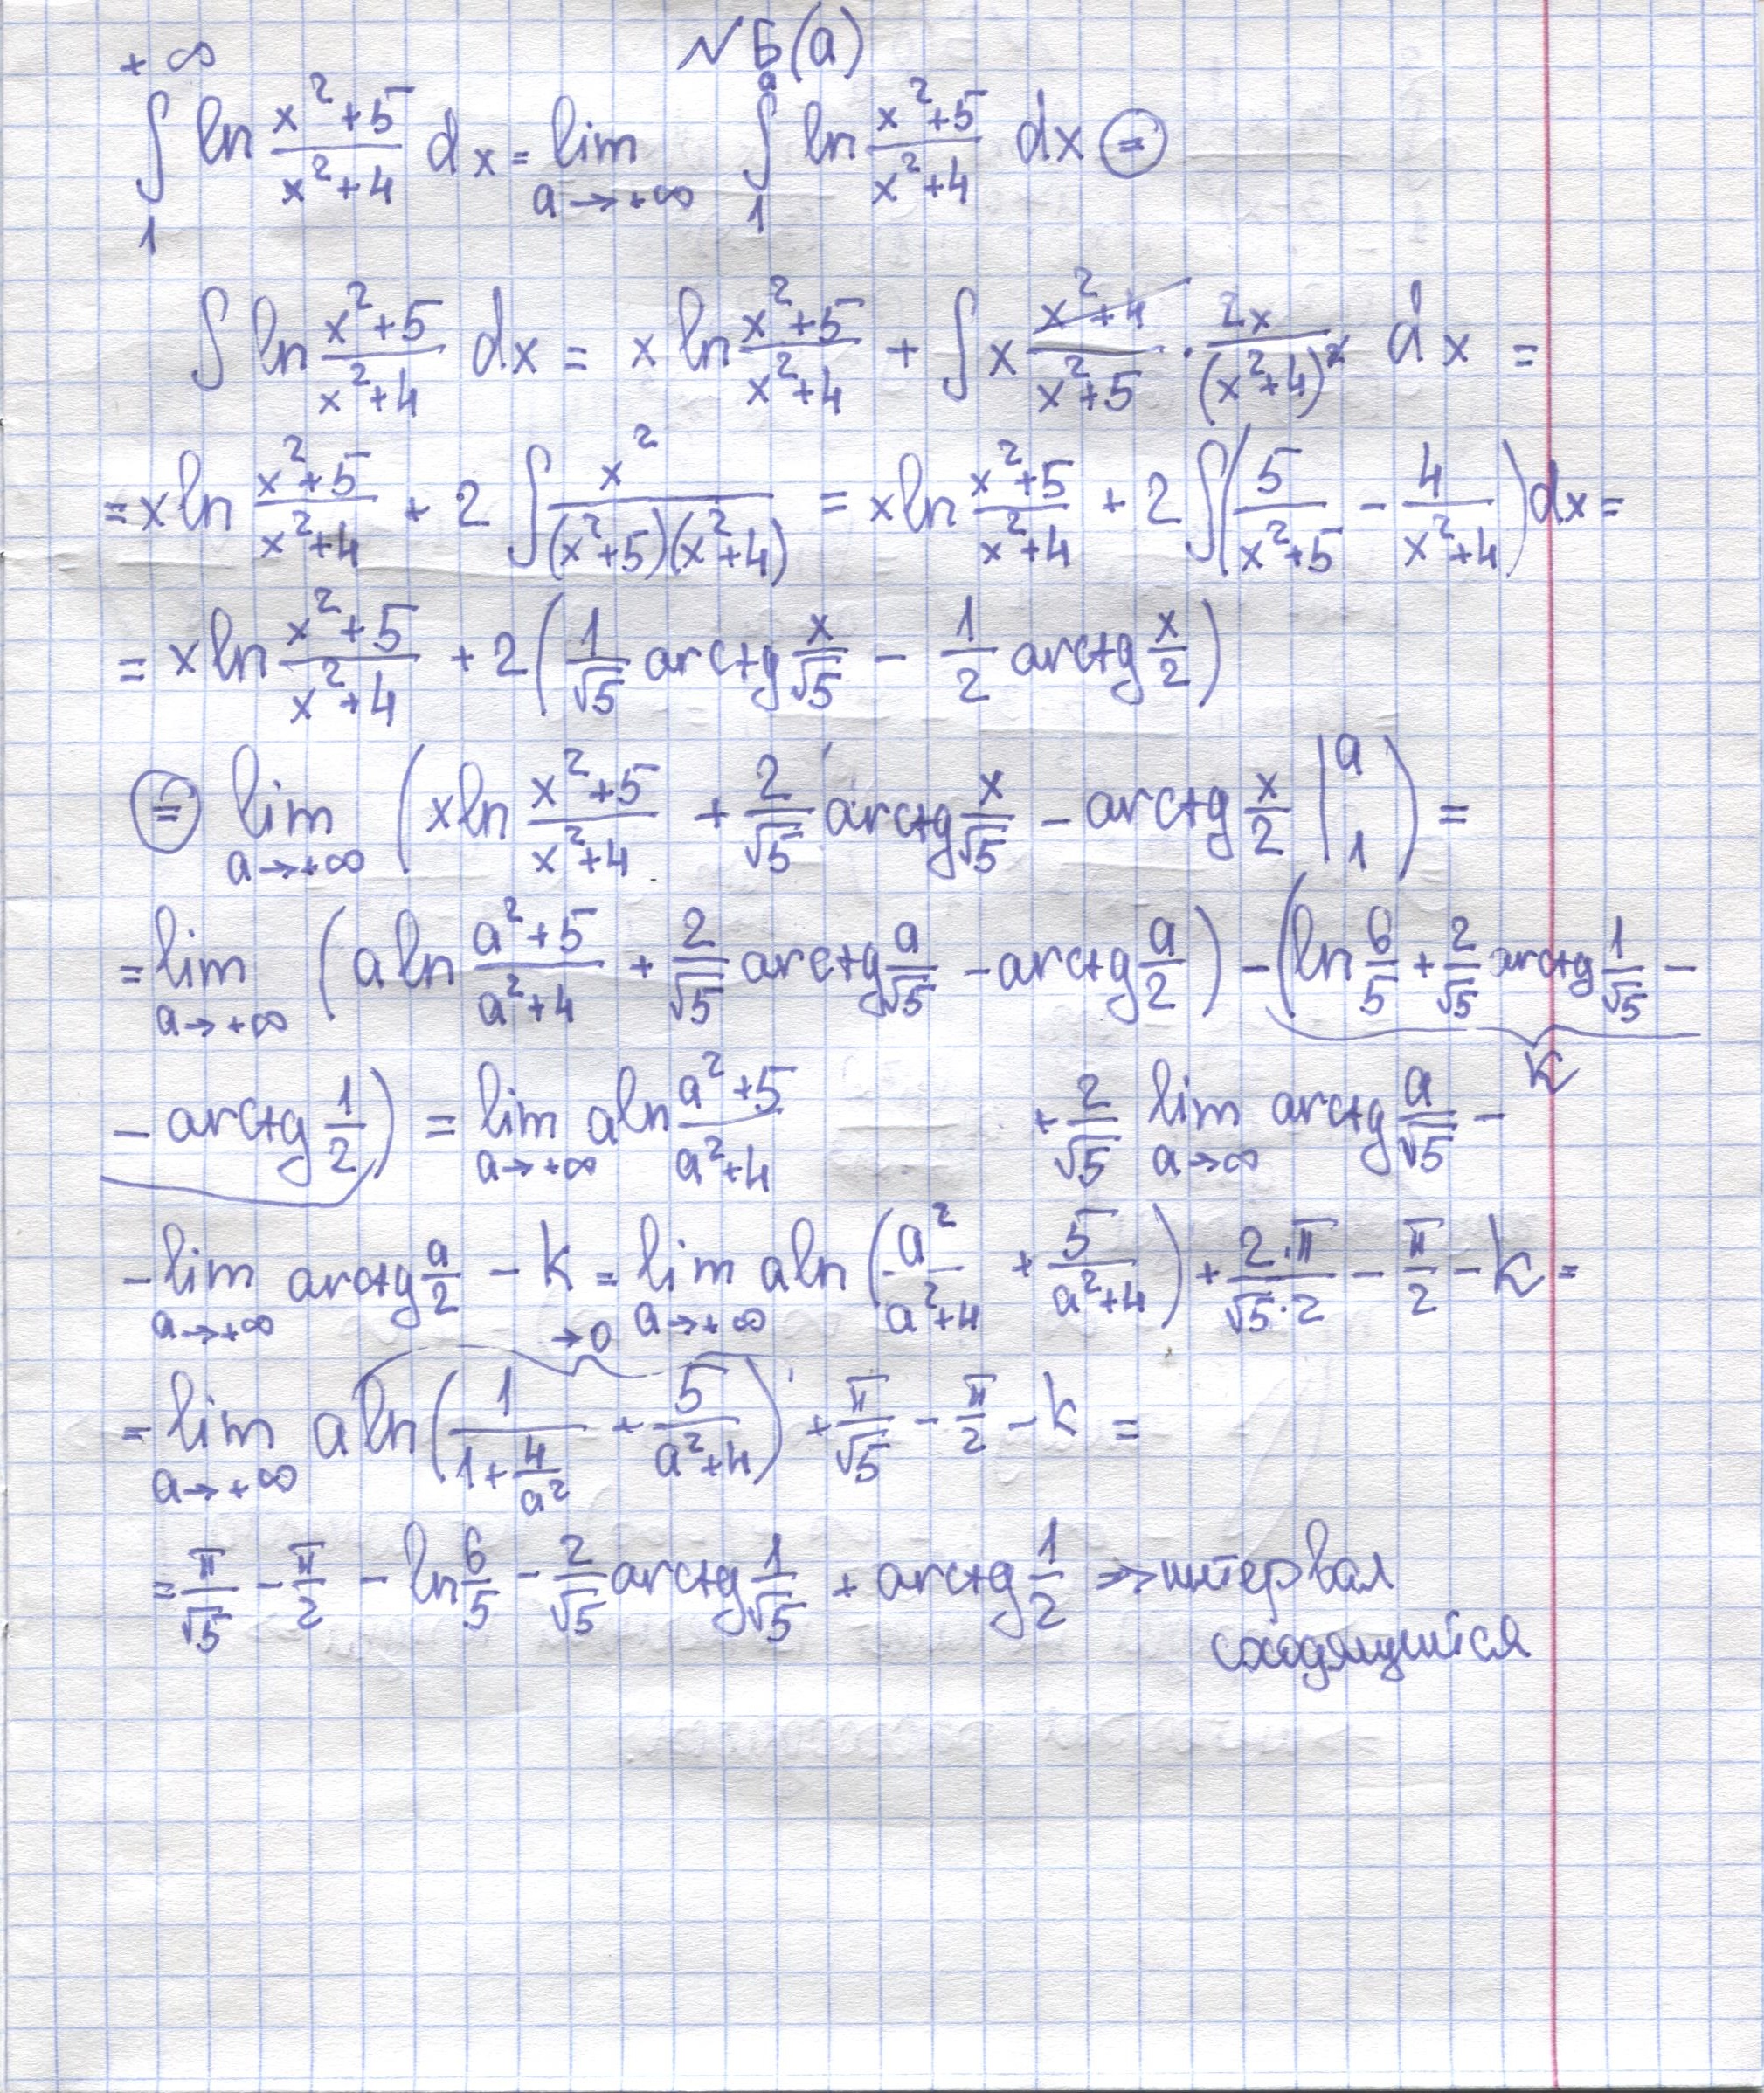 № Б(а)
∫₁^{+∞} ln (x²+5)/(x²+4) dx = lim_{a→+∞} ∫₁^a ln (x²+5)/(x²+4) dx ⊜
∫ ln (x²+5)/(x²+4) dx = x ln (x²+5)/(x²+4) + ∫ x (x²+4)/(x²+5) · 2x/(x²+4)² dx =
= x ln (x²+5)/(x²+4) + 2 ∫ x²/((x²+5)(x²+4)) = x ln (x²+5)/(x²+4) + 2 ∫(5/(x²+5) - 4/(x²+4)) dx =
= x ln (x²+5)/(x²+4) + 2(1/√5 arctg x/√5 - 1/2 arctg x/2)
⊜ lim_{a→+∞} (x ln (x²+5)/(x²+4) + 2/√5 arctg x/√5 - arctg x/2 |₁^a) =
= lim_{a→+∞} (a ln (a²+5)/(a²+4) + 2/√5 arctg a/√5 - arctg a/2) - (ln 6/5 + 2/√5 arctg 1/√5 -
k
- arctg 1/2) = lim_{a→+∞} a ln (a²+5)/(a²+4) + 2/√5 lim_{a→∞} arctg a/√5 -
- lim_{a→+∞} arctg a/2 - k = lim_{a→+∞} a ln (a²/(a²+4) + 5/(a²+4)) + 2·π/(√5·2) - π/2 - k =
→0
= lim_{a→+∞} a ln (1/(1+4/a²) + 5/(a²+4)) + π/√5 - π/2 - k =
= π/√5 - π/2 - ln 6/5 - 2/√5 arctg 1/√5 + arctg 1/2 => интервал
сходящийся